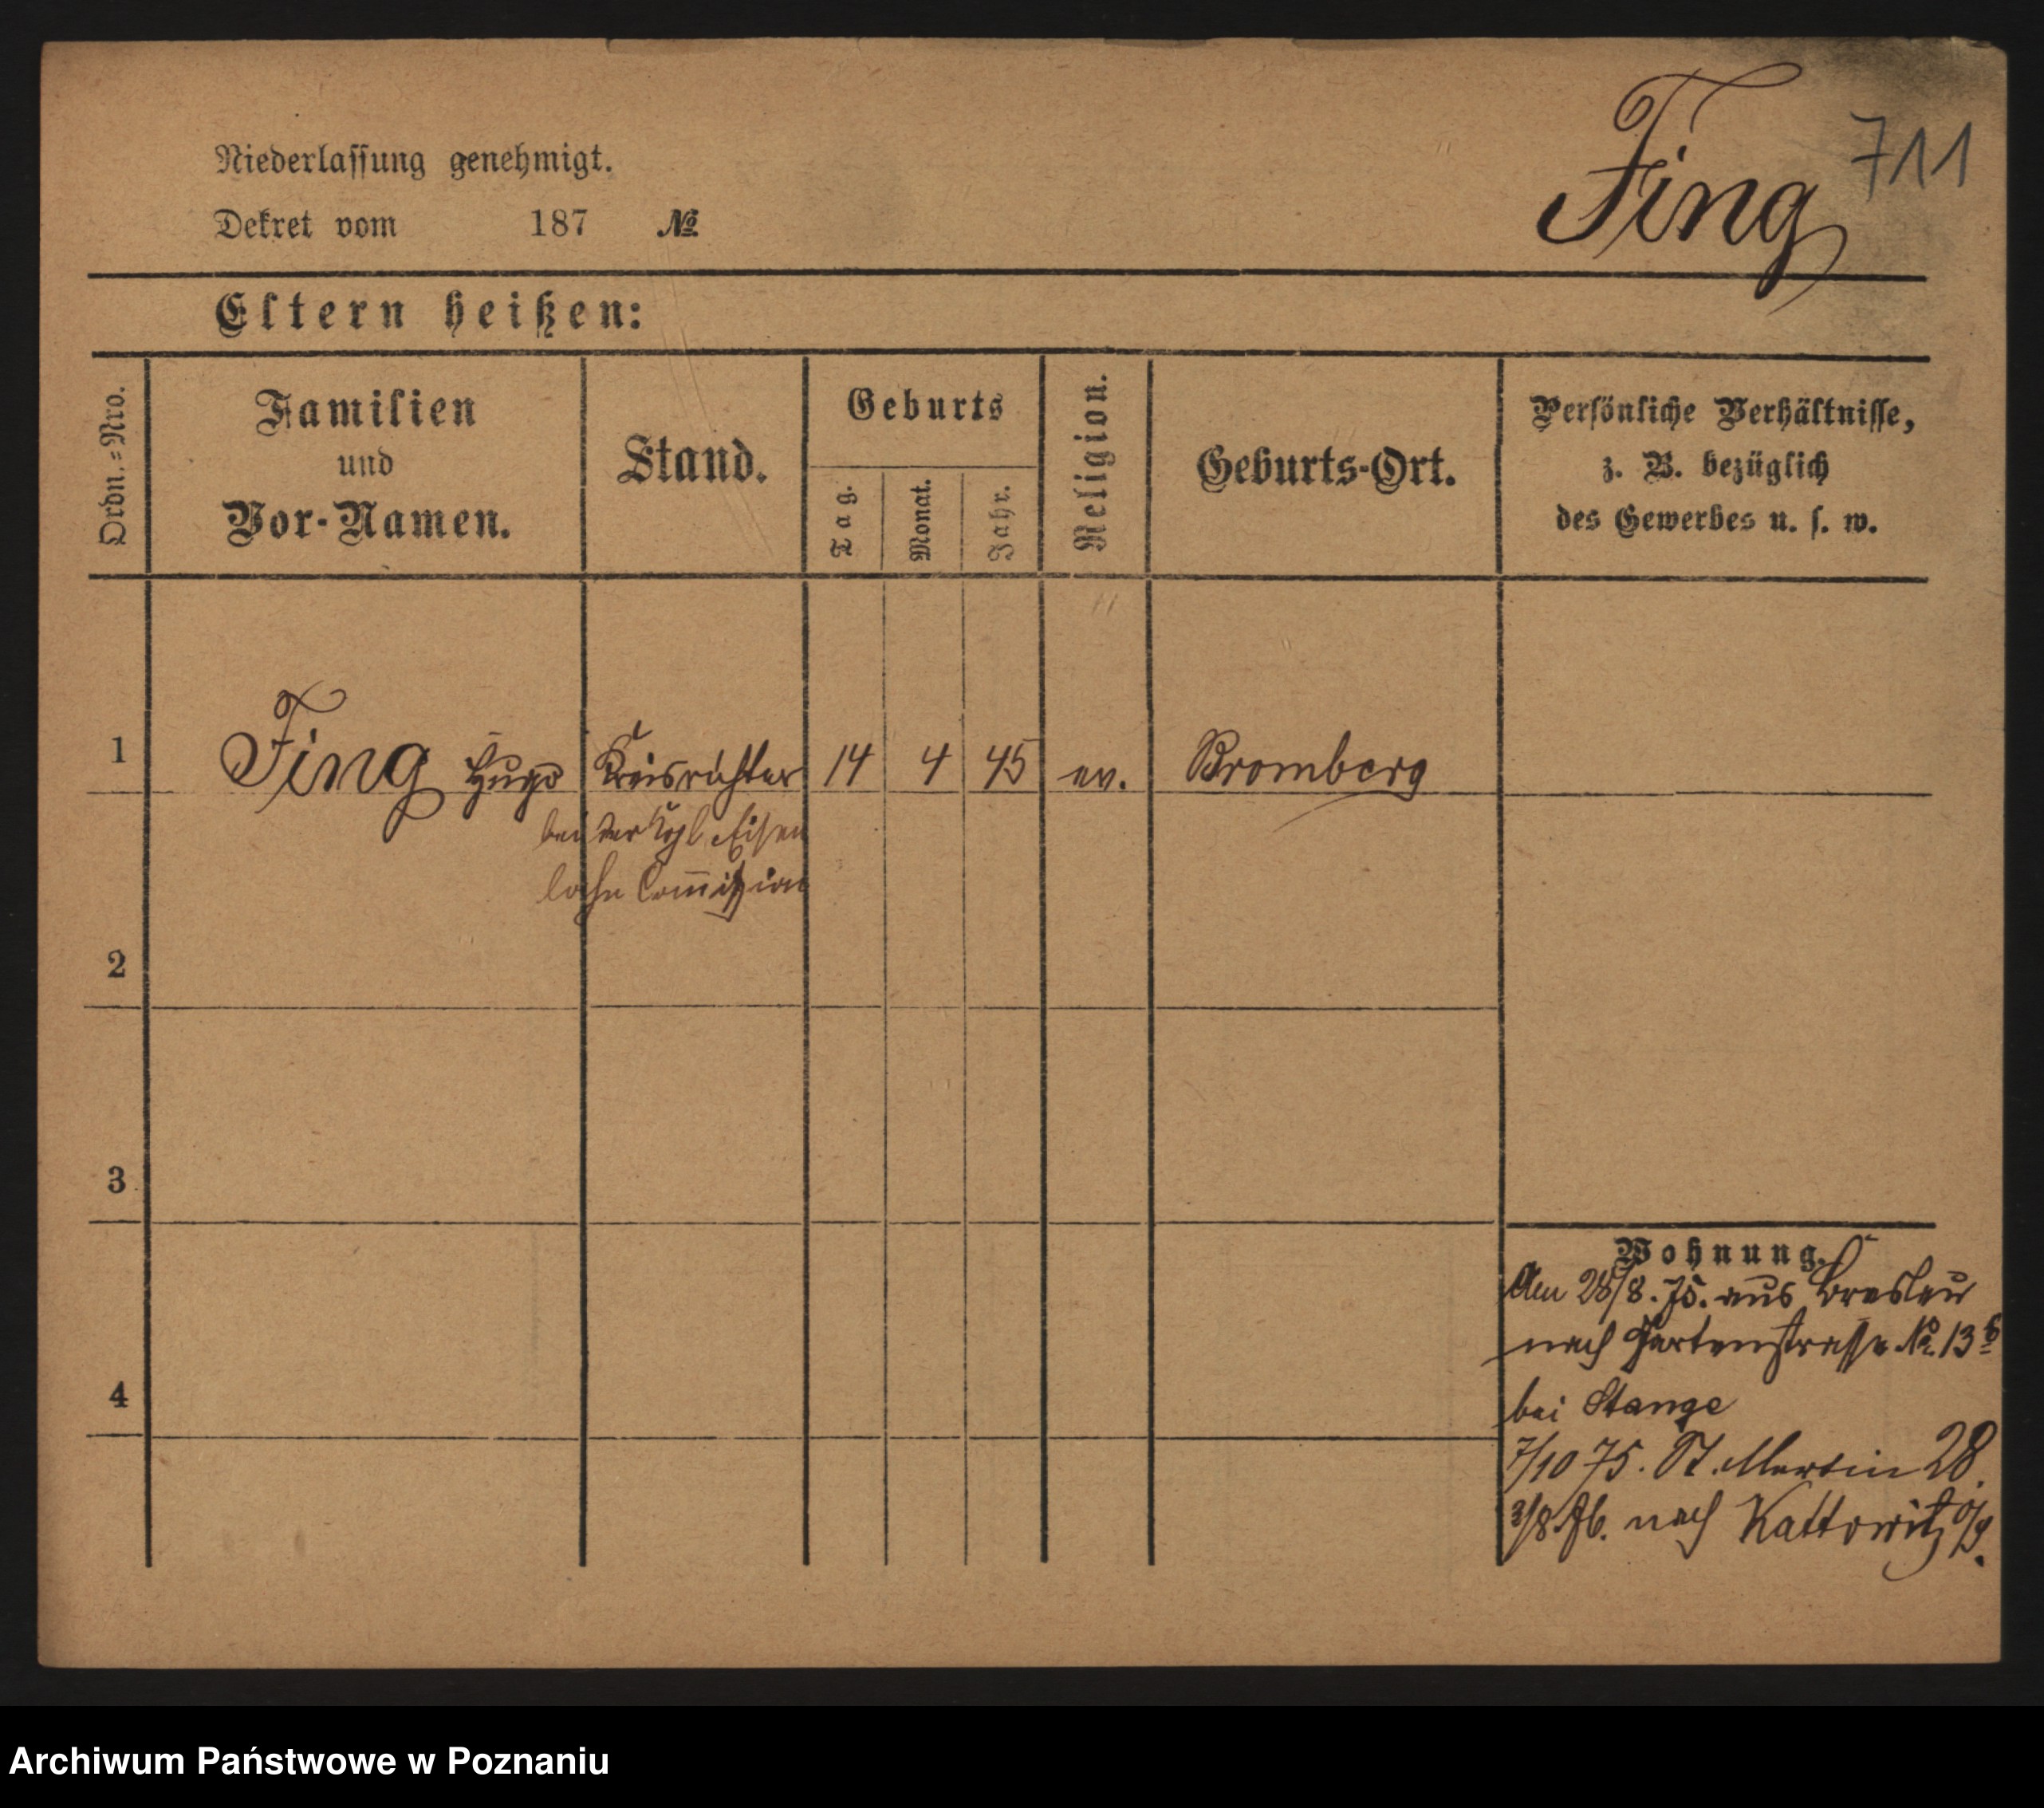 Fing 711
Niederlassung genehmigt.
Dekret vom 187 №
Eltern heißen:
Ordn.=Nro.
Familien
und
Vor-Namen.
Stand.
Geburts
Tag.
Monat.
Jahr.
Religion.
Geburts-Ort.
Persönliche Verhältnisse,
z. B. bezüglich
des Gewerbes u. s. w.
1 Fing Hugo Kreisrichter 14 4 45 ev. Bromberg
bei der Kgl. Eisen
bahn Com̄ission
2
3
4
Wohnung.
Am 28/8. 75. aus Breslau
nach Gartenstrasse No. 13 b
bei Stange
7/10 75. St. Martin 28.
nach Kattowitz
Archiwum Państwowe w Poznaniu